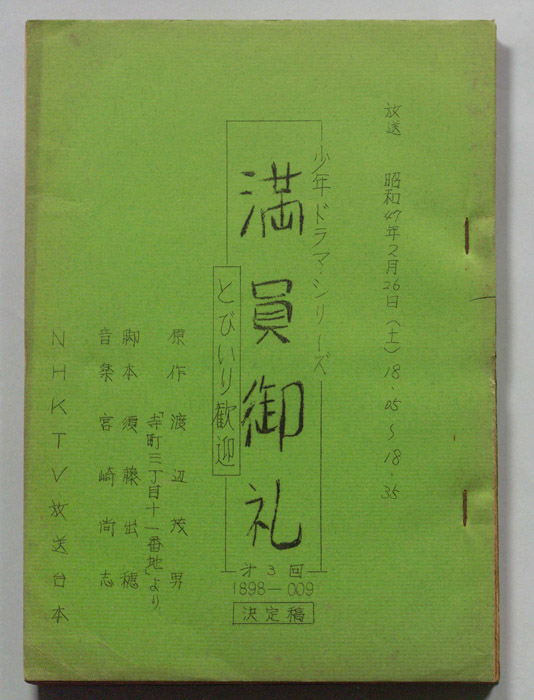 放送 昭和47年2月26日(土)18.05~18.35
少年ドラマ・シリーズ
満員御礼
とびいり歓迎
才3回
1898-009
決定稿
原作 渡辺茂男
「寺町三丁目十一番地」より
脚本 須藤出穂
音楽 宮崎尚志
NHKTV放送台本